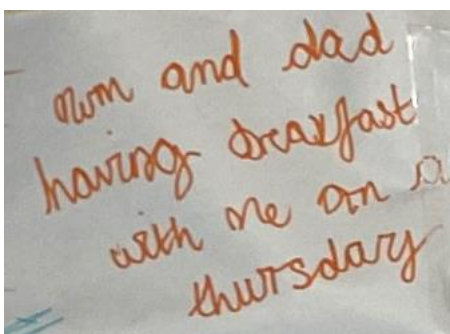 mum and dad
having breakfast
with me on a
thursday